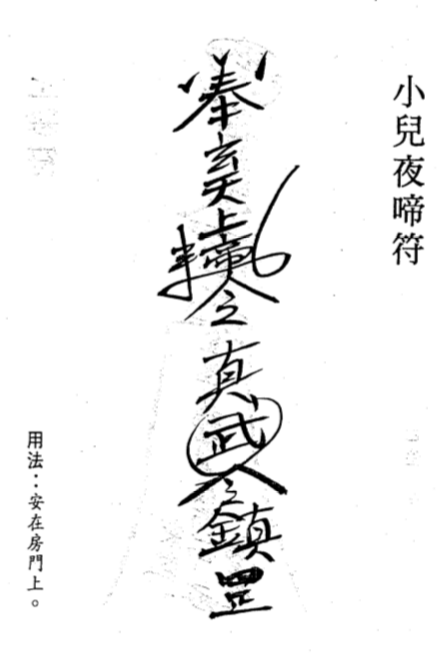 小兒夜啼符
奉玄天上帝令
真武令鎮罡
用法：安在房門上。